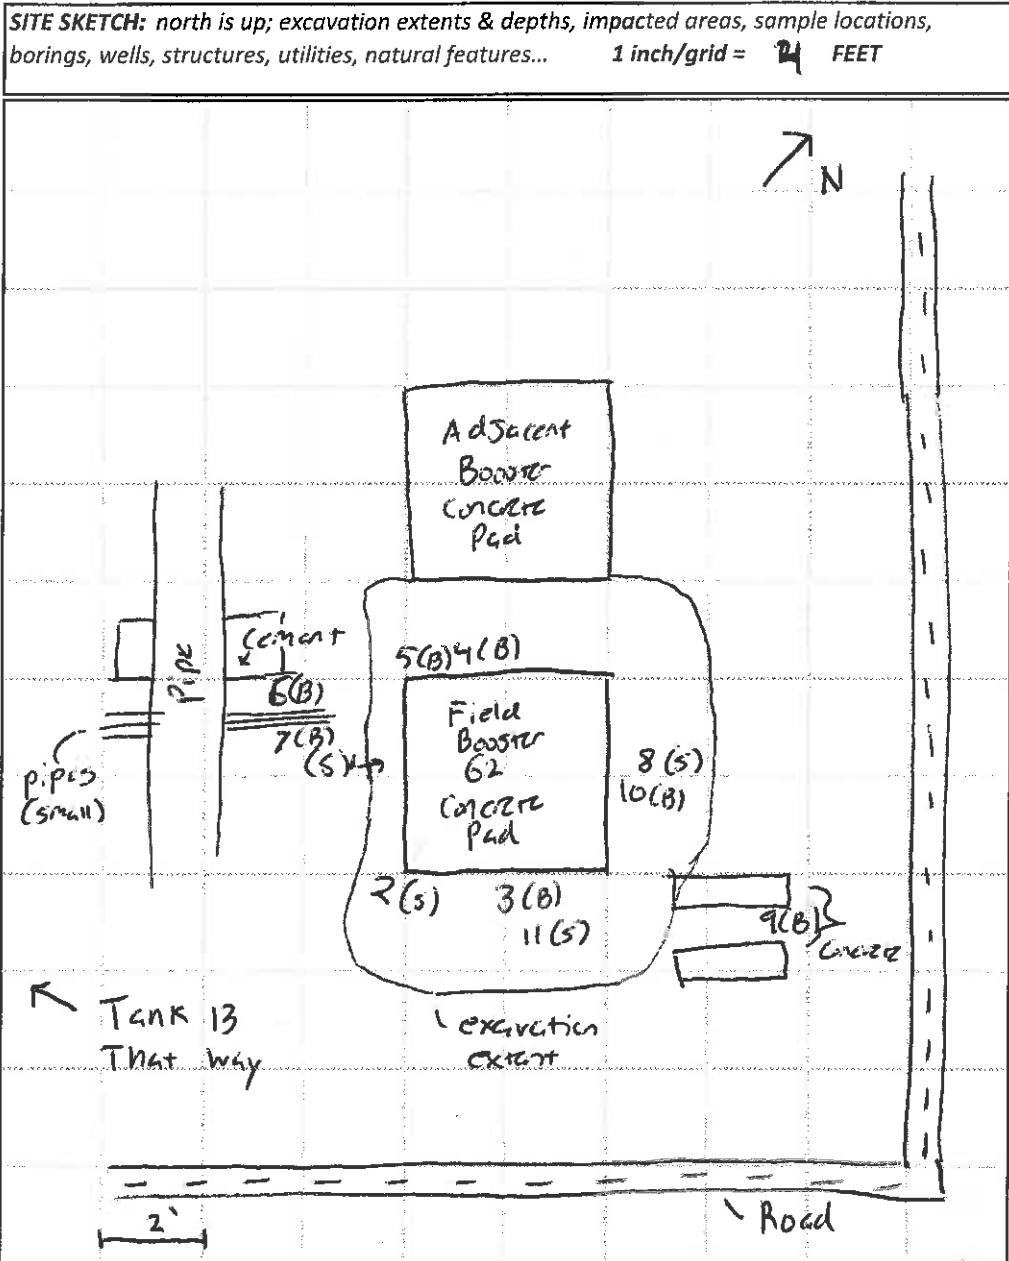 SITE SKETCH: north is up; excavation extents & depths, impacted areas, sample locations,
borings, wells, structures, utilities, natural features... 1 inch/grid = FEET
N
Adjacent
Booster
Concrete
Pad
Cement
Pipe
5(B) 4(B)
6(B)
7(B)
(S)
Field
Booster
62
Concrete
Pad
8(S)
10(B)
pipes
(small)
2(S)
3(B)
11(S)
9(B)
Concrete
Tank 13
That way
excavation
extent
2'
Road